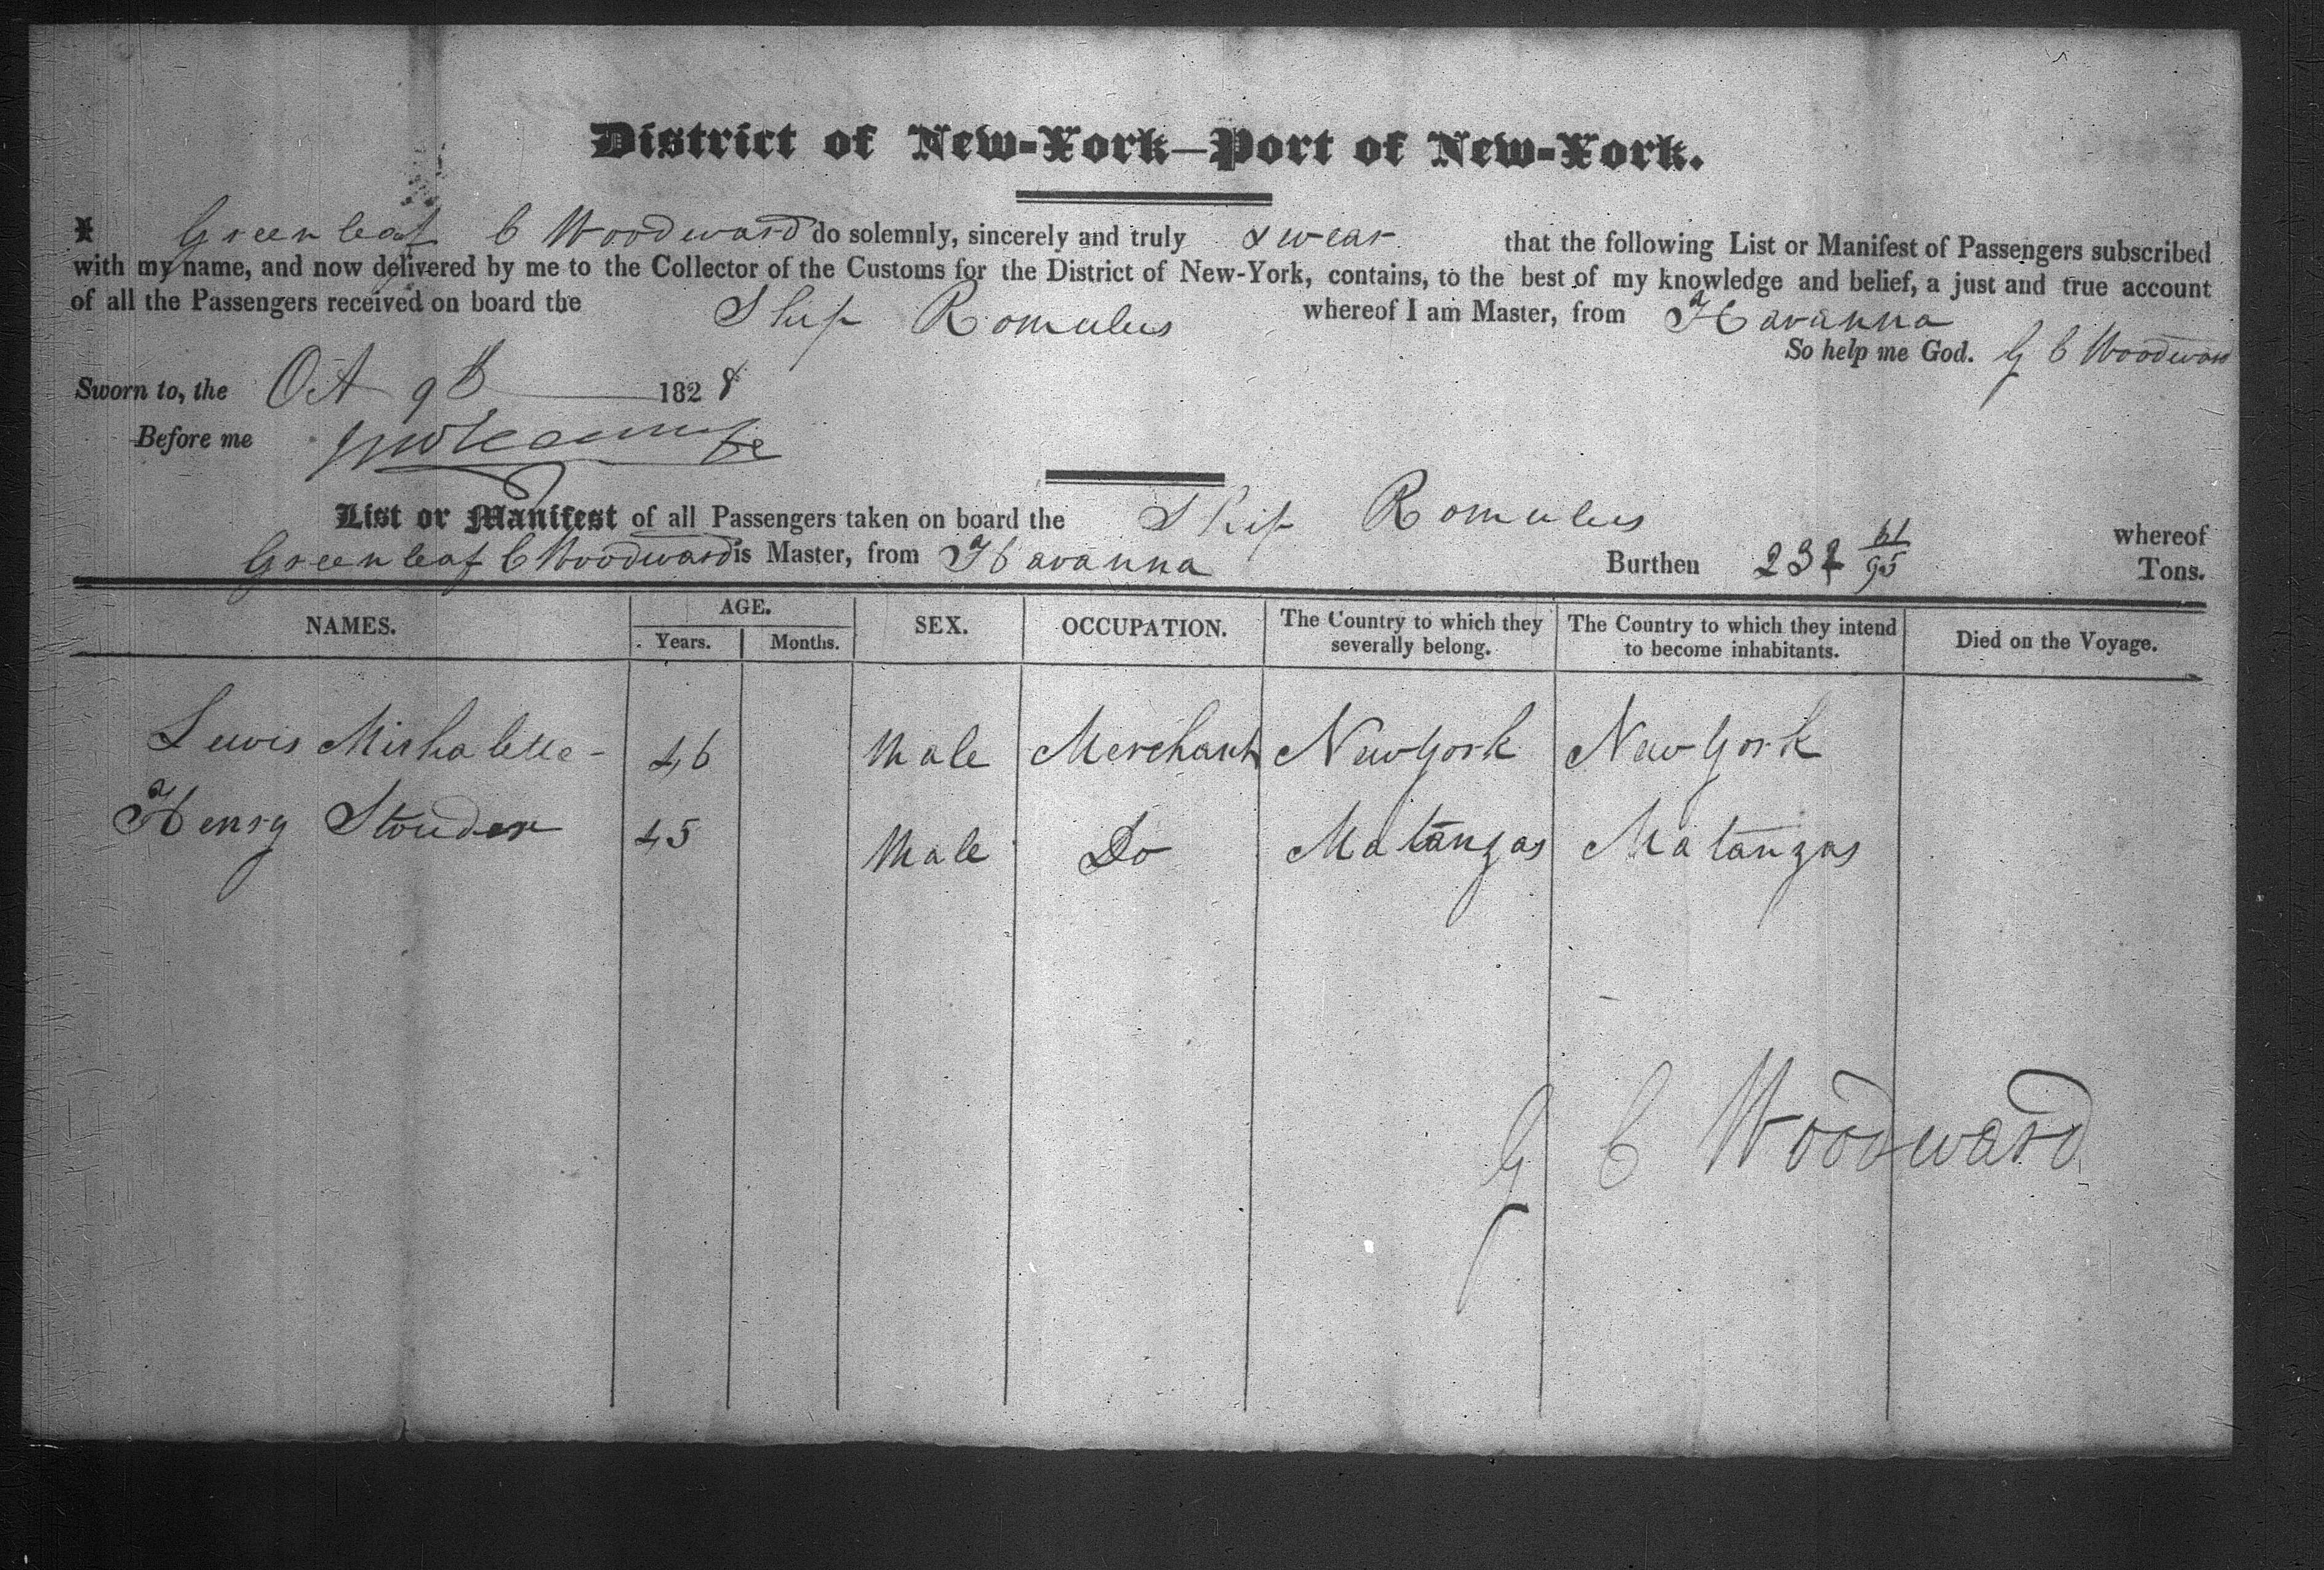 District of New-York—Port of New-York.
I Greenleaf C Woodward do solemnly, sincerely and truly swear that the following List or Manifest of Passengers subscribed
with my name, and now delivered by me to the Collector of the Customs for the District of New-York, contains, to the best of my knowledge and belief, a just and true account
of all the Passengers received on board the Ship Romulus whereof I am Master, from Havanna
So help me God. G C Woodward
Sworn to, the Oct 9 1828
Before me
List or Manifest of all Passengers taken on board the Ship Romulus whereof
Greenleaf C Woodward is Master, from Havanna Burthen 232 61/95 Tons.
NAMES. AGE. SEX. OCCUPATION. The Country to which they severally belong. The Country to which they intend to become inhabitants. Died on the Voyage.
Years. Months.
Lewis 46 Male Merchant New York New York
Henry Stouder 45 Male Do Matanzas Matanzas
G C Woodward